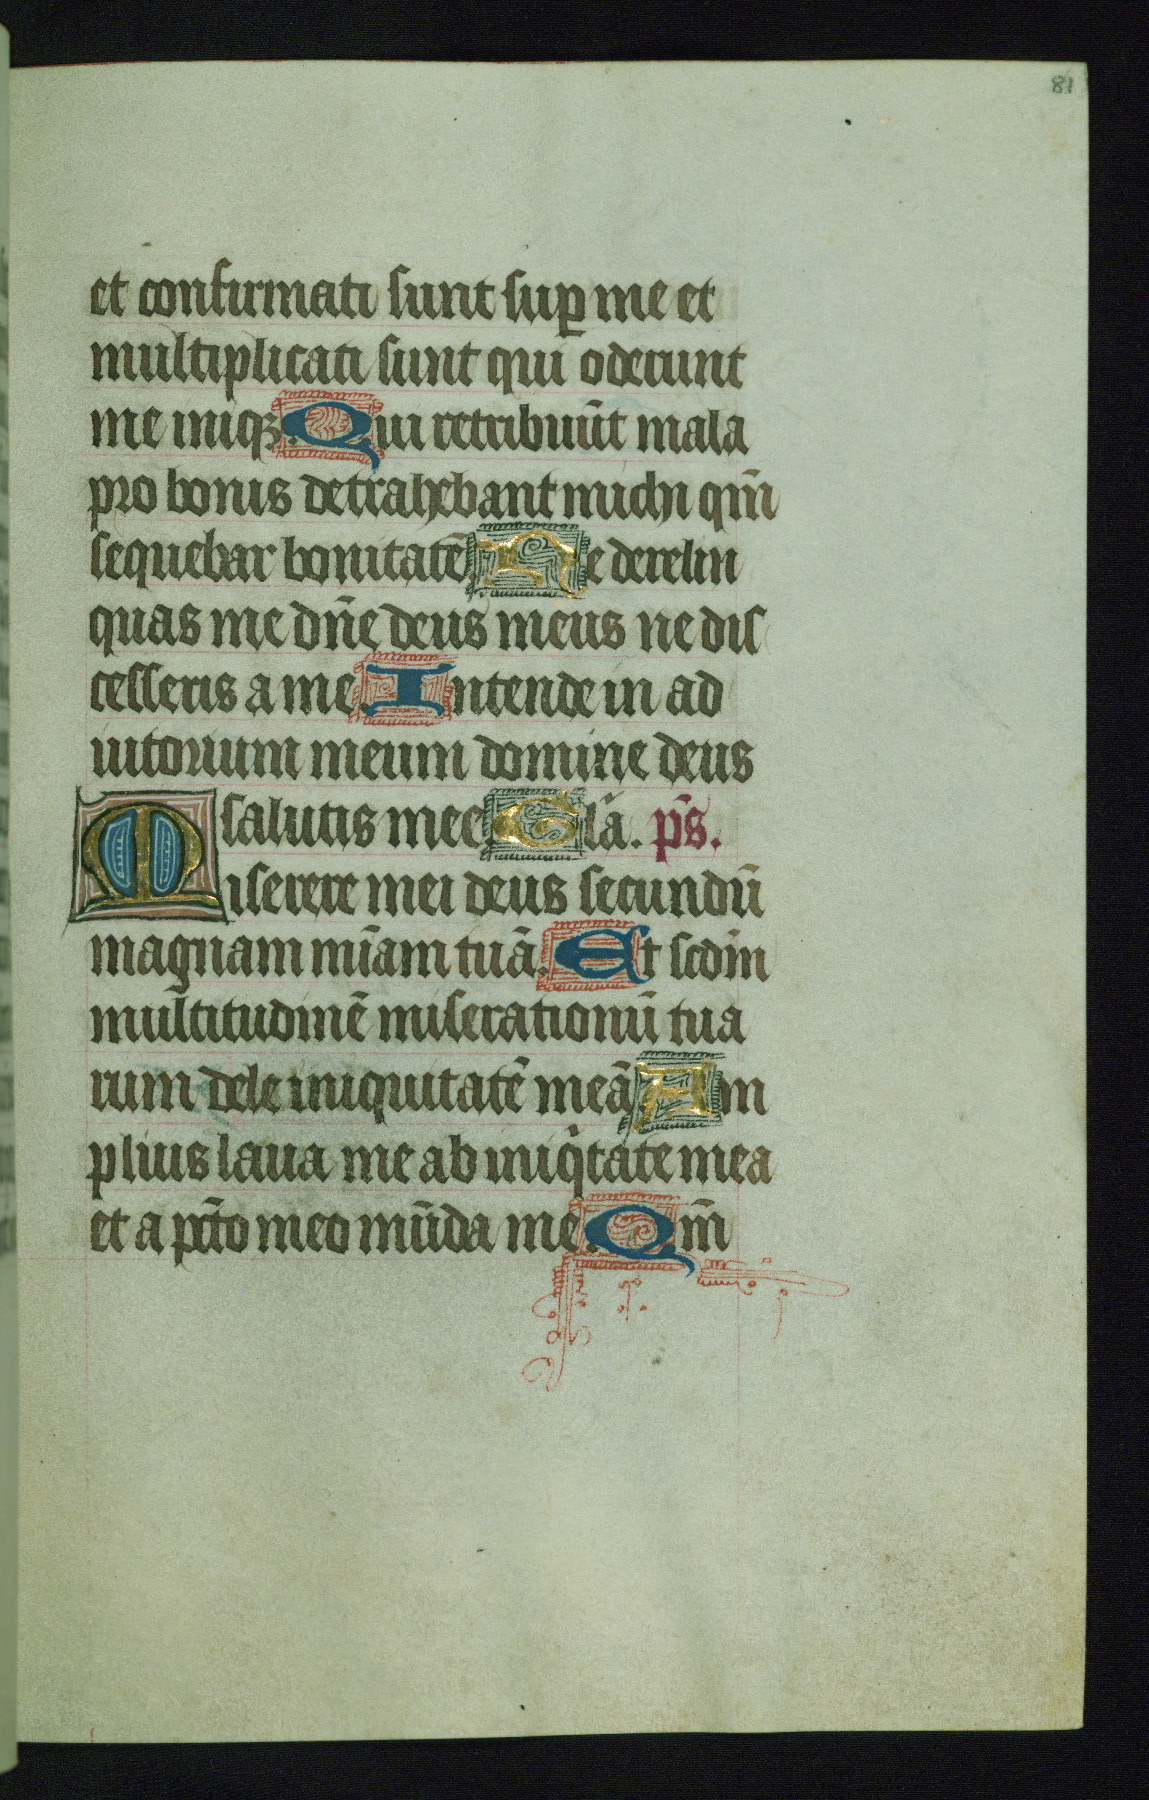 81
et confirmati sunt sup̱ me et
multiplicati sunt qui oderunt
me iniqꝫ. Qui retribuūt mala
pro bonis detrahebant michi qm̄
sequebar bonitatē. Ne derelin
quas me dn̄e deus meus ne dis
cesseris a me. Intende in ad
iutorium meum domine deus
salutis mee. Gl̄a. ps̄.
Miserere mei deus secundū
magnam mīam tuā. Et scdm̄
multitudinē miserationū tua
rum dele iniquitatē meā. Am
plius laua me ab iniqͥtate mea
et a pct̄o meo mūda me. Qm̄